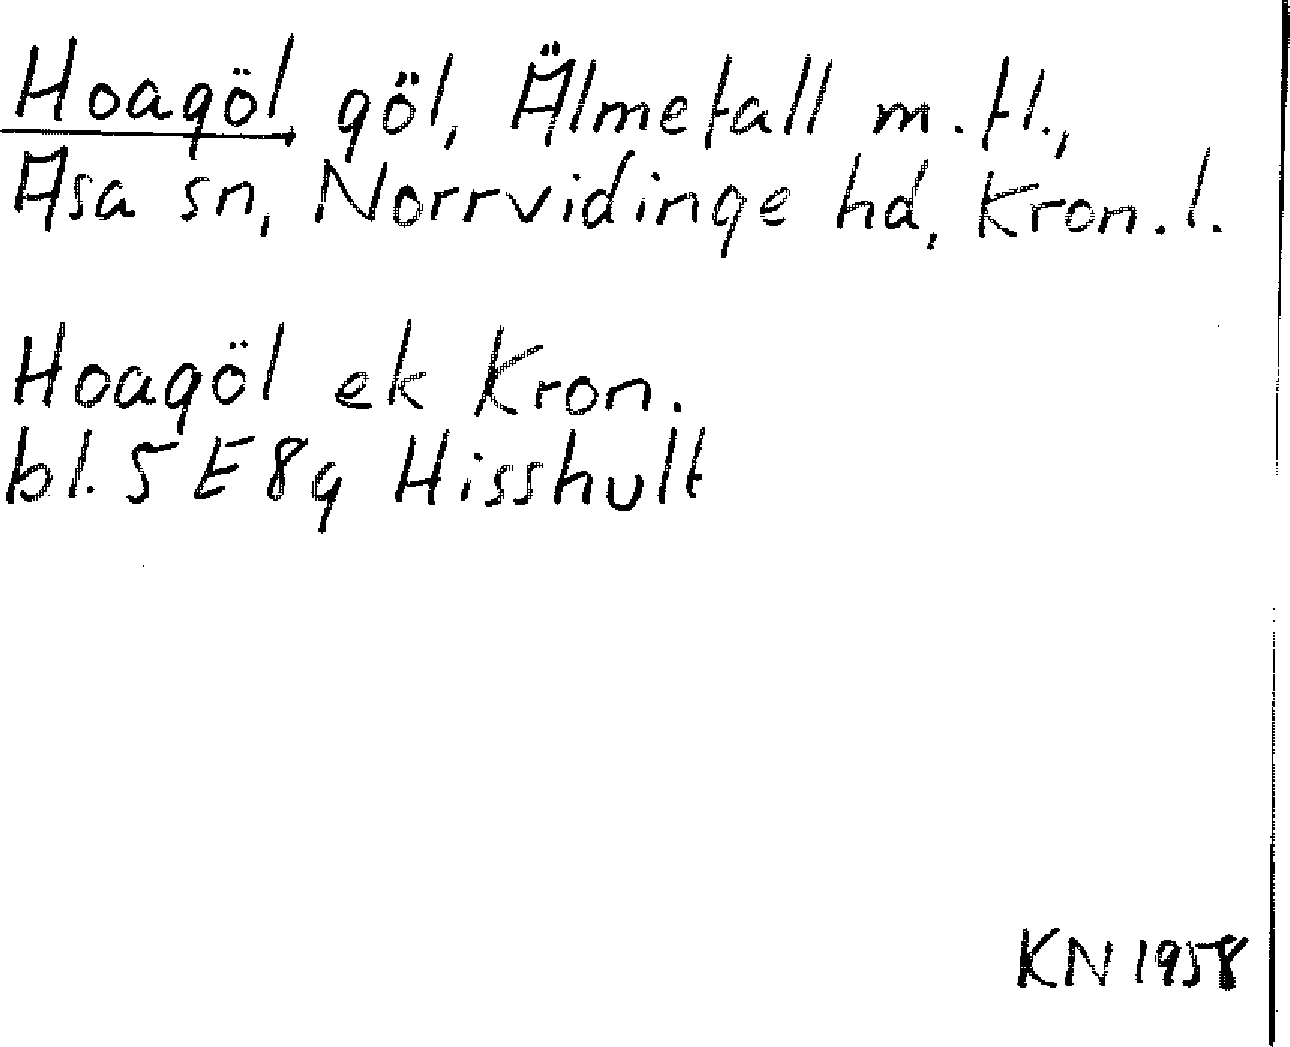 Hoagöl göl, Älmefall m.fl.,
Asa sn, Norrvidinge hd, Kron.l.
Hoagöl ek Kron.
bl. 5 E 8g Hisshult
KN 1958